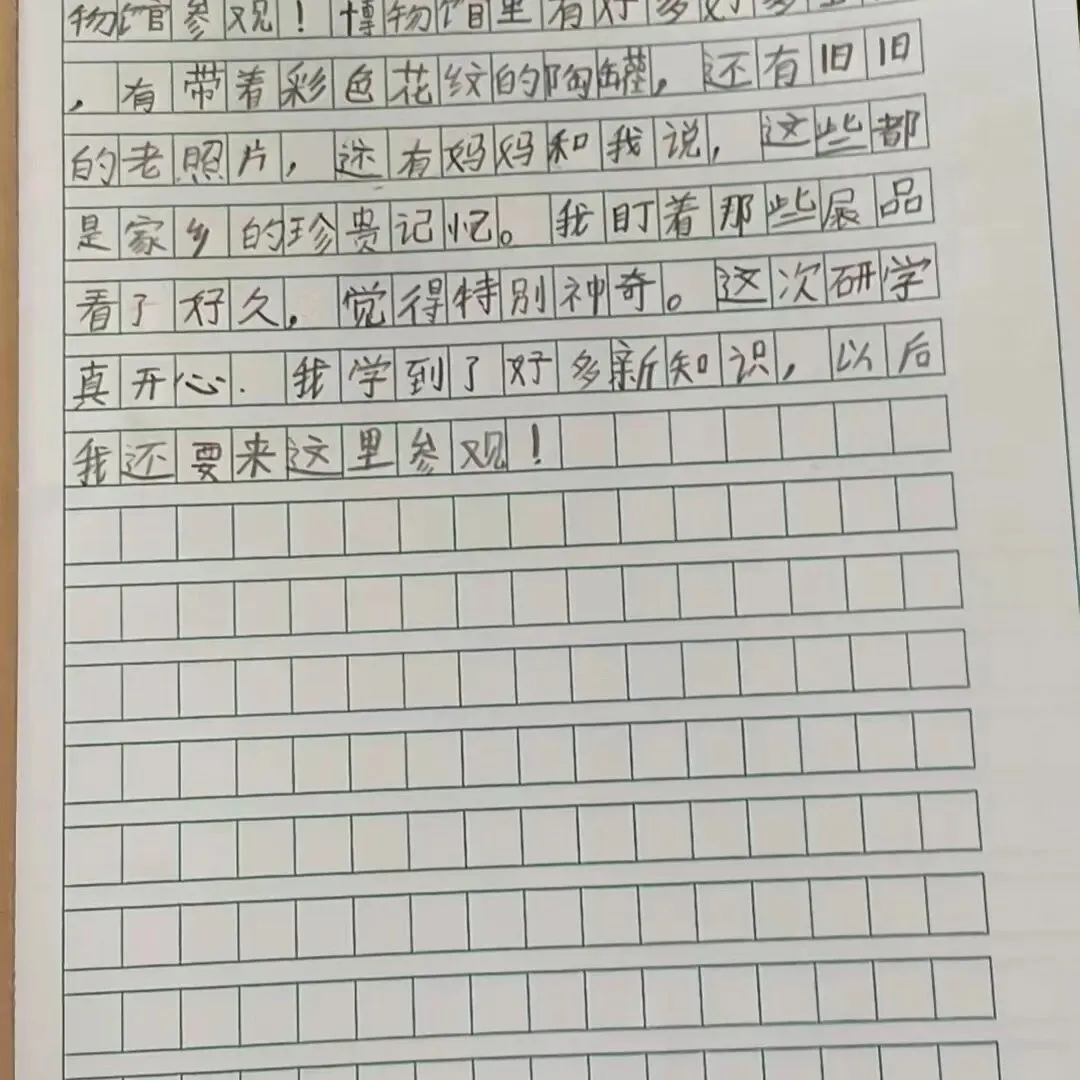 物馆参观！博物馆里有好多好多
，有带着彩色花纹的陶罐，还有旧旧
的老照片，还有妈妈和我说，这些都
是家乡的珍贵记忆。我盯着那些展品
看了好久，觉得特别神奇。这次研学
真开心.我学到了好多新知识，以后
我还要来这里参观！